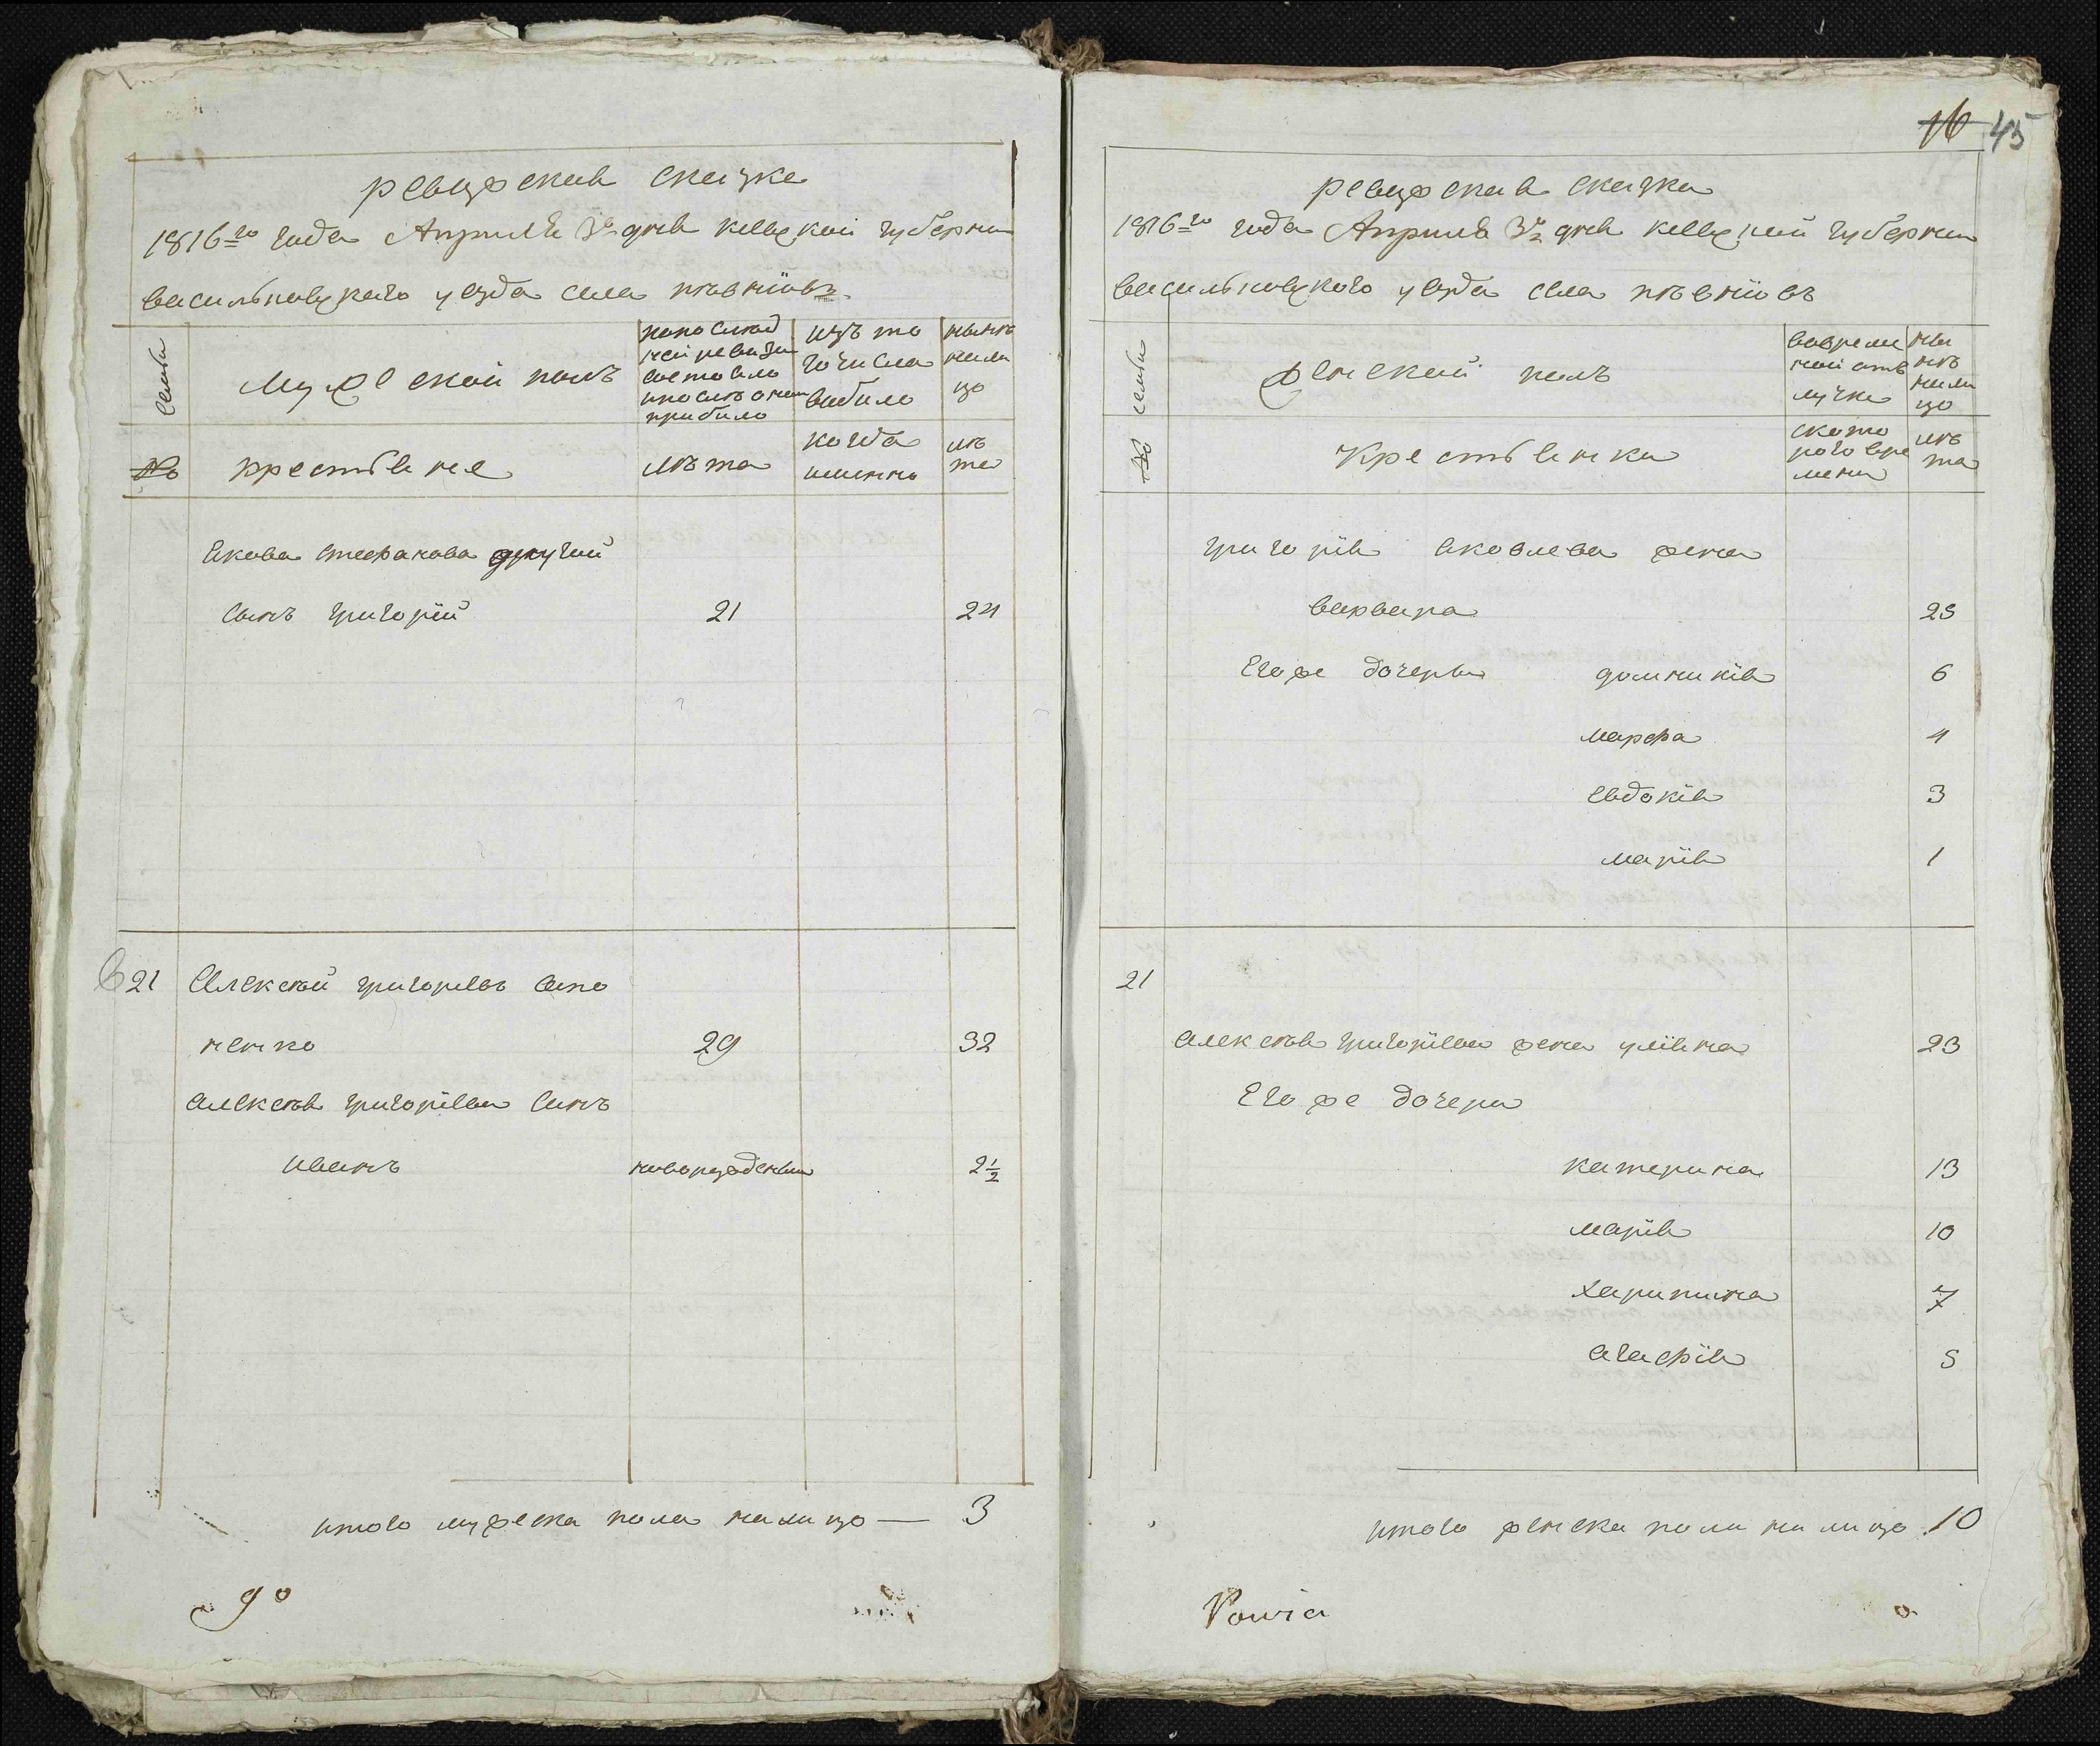 ревизская сказка
1816го года Апреля 3го дня киевской губернии
васильковского уезда села пивнювъ
семьи
Мужеской полъ
по последней ревизии состояло и после оной прибыло
изъ того числа выбыло
ныне налицо
№
крестьяне
лѣта
когда именно
лѣта
Якова стефанова другий
сынъ григорий 21 24
21 Алексей григориевъ
ненко 29 32
алексея григориева синъ
иванъ новорожденый 2½
итого мужеска пола налицо — 3
16 45
ревизская сказка
1816го года Апреля 3го дня киевской губернии
васильковского уезда села пивнювъ
семьи
женский полъ
во временной отлучке
ныне налицо
№
крестьянки
с которого времени
лѣта
григория яковлева жена
варвара 25
Его же дочери домникия 6
марфа 4
евдокия 3
мария 1
21
алексея григориева жена улияна 23
Его же дочери
катерина 13
мария 10
харитина 7
агафия 5
итого женска пола налицо 10